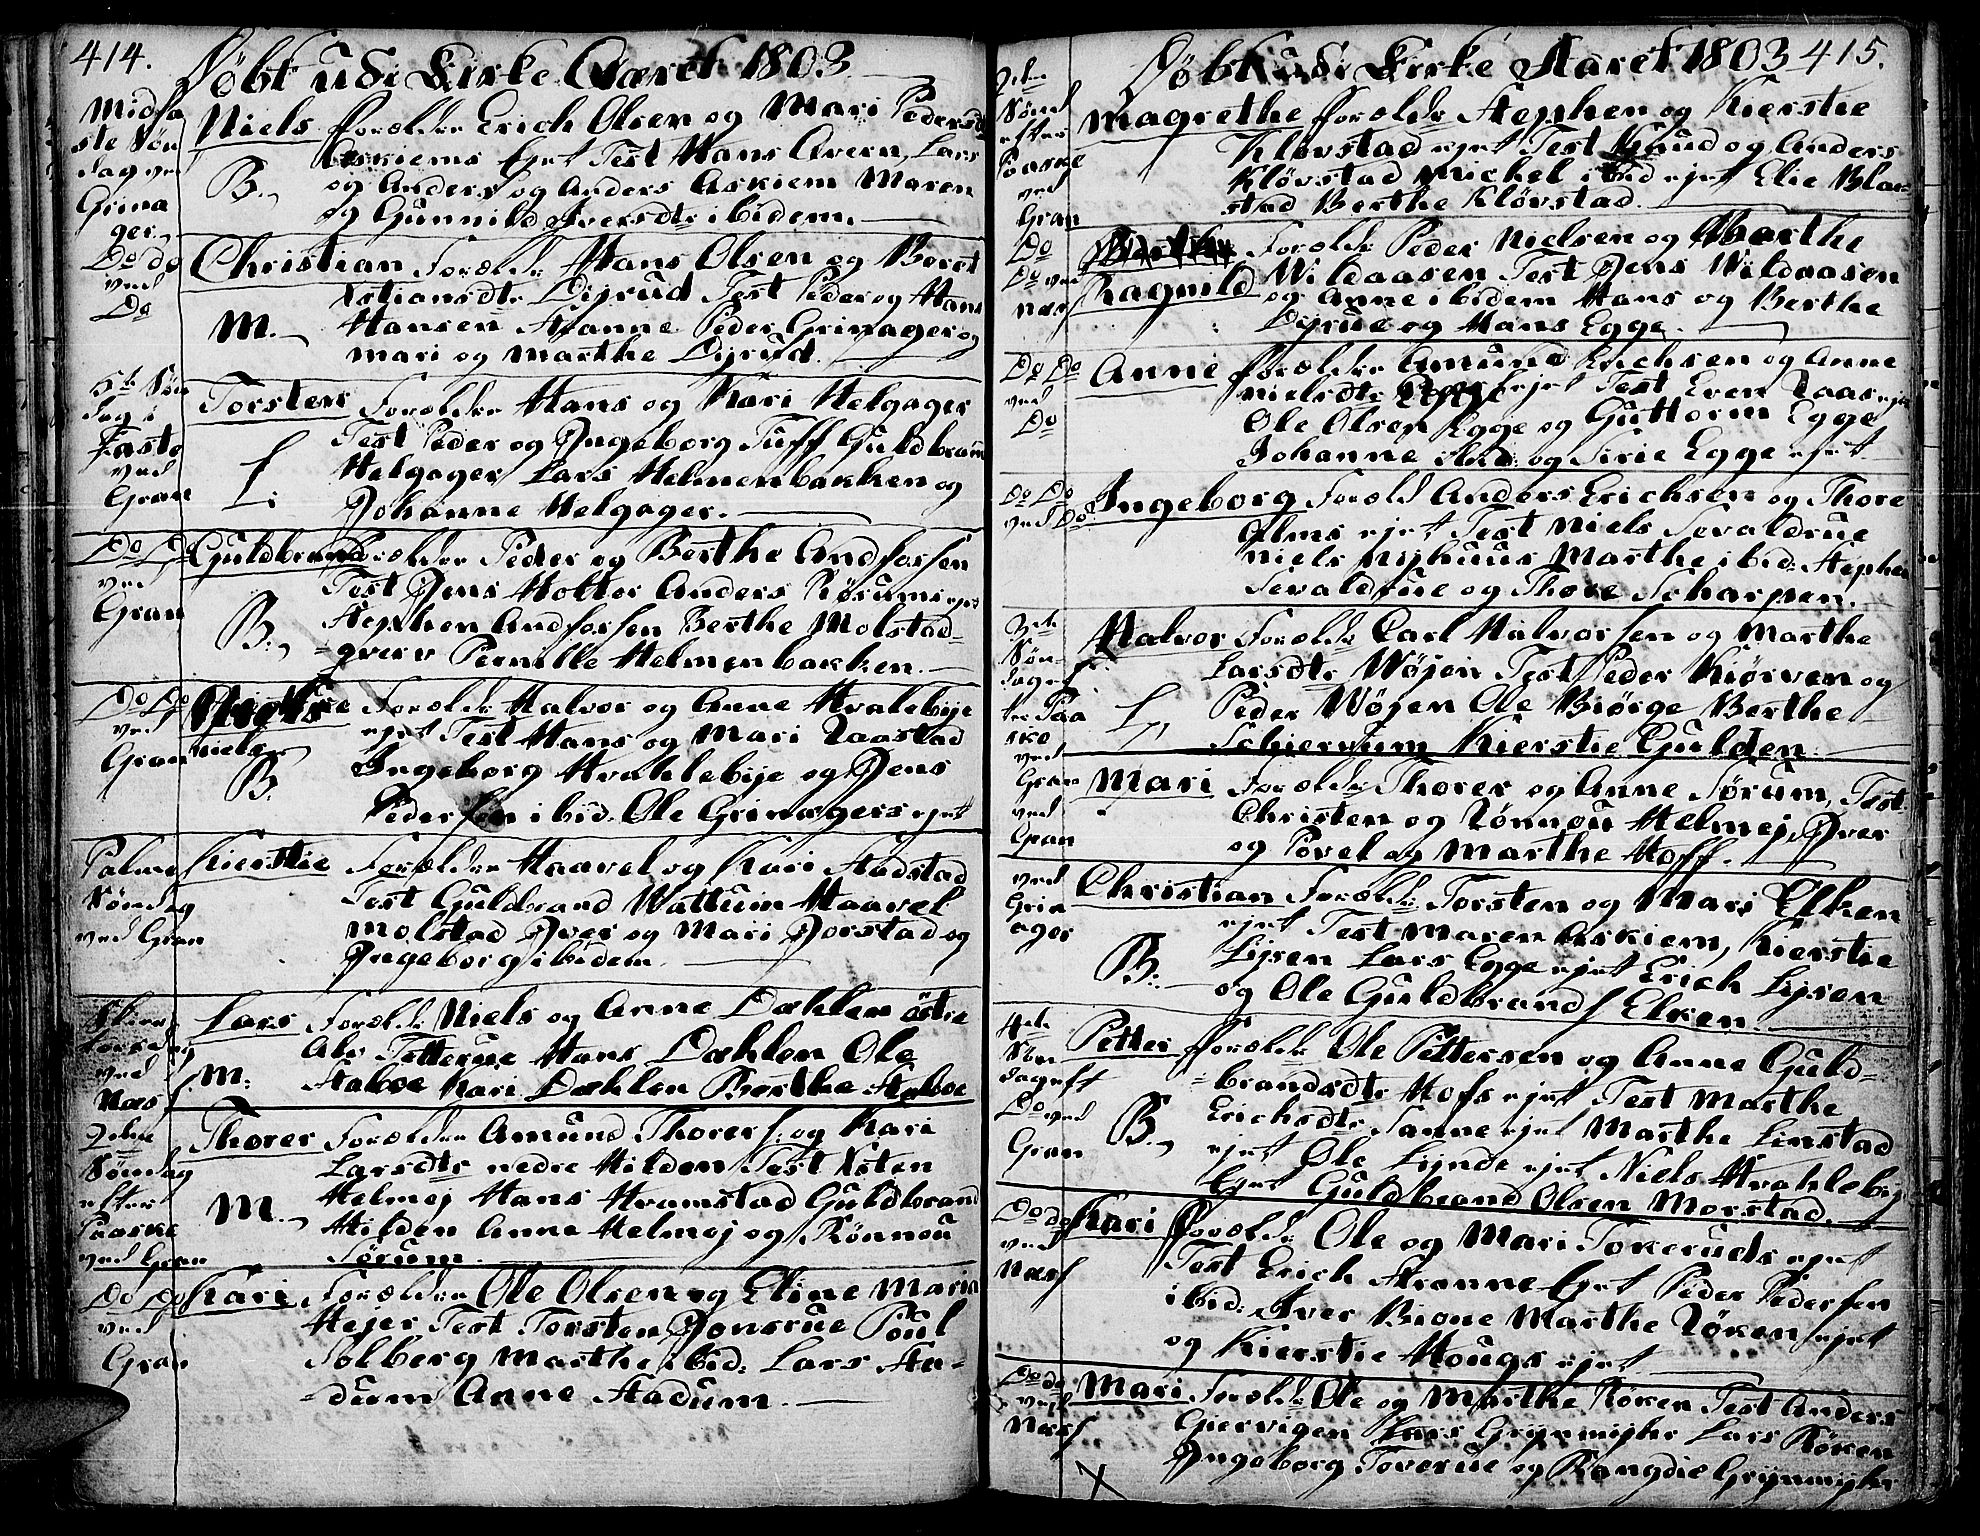 414.
Døbt udi Kirke Aaret 1803
Midfa
ste Søn
dag ved
Grina
ger
Niels Forældre Erich Olsen og Mari Pedersdt
Askiems Ejet Test Hans Avern, Lars
B. og Anders og Anders Askiem Maren
og Gunnild Iversdtr ibidem.
Do do
ved
Do
Christian Forældr Hans Olsen og Beret
Xstiansdtr Dijrud Test Peder og Hans
M. Hansen Aanne Peder Grinager og
Mari og Marthe Dijrud.
5te Søn
dag i
Faste
ved
Gran
Torsten Forældre Hans og Kari Helgager
Test Peder og Ingeborg Tuff Guldbrand
L: Helgager Lars Helmenbakken og
Johanne Helgager.
Do Do
ved
Gran
Guldbrand Forældre Peder og Berthe Andforsen
Test Jens Holter Anders Rørums ejet
B. Stephen Andforsen Berthe Molstad-
qvern Pernille Helmenbakken.
Do Do
ved
Gran
Niels Forældr Halvor og Anne Hvalebije
ejet Test Hans og Mari Raastad
B. Ingeborg Hvahlebije og Jens
Pedersen ibid. Ole Grinagers ejet
Palme
Søndag
ved Gran
Kierstie Forældre Haavel og Kari Stadstad
Test Guldbrand Wattum Haavel
Molstad Iver og Mari Jorstad og
Ingeborg ibidem
Skier
torsdag
ved
Næss
Lars Forældr Niels og Anne Dæhlen østre
Als Tetterue Hans Dæhlen Ole
M: Staboe Kari Dæhlen Berthe Staboe
2den
Søndag
efter
Paaske
ved Gran
Thorer Forældre Amund Thorers. og Kari
Larsdtr nedre Hilden Test Xsten
M. Helmej Hans Hvamstad Guldbrand
Hilden Anne Helmej og Rønnou
Sørum
Do Do
ved
Gran
Kari Forældre Ole Olsen og Eline Maria
Hejer Test Torsten Jonsrue Poul
Solberg Marthe ibid: Lars Sta-
dum Anne Stadum.
Døbt udi Kirke Aaret 1803 415.
2den
Sønd
efter
Poaske
ved
Gran
Magrethe Forældr Stephen og Kierstie
Kløvstad ejet Test Knud og Anders
Kløvstad Michel ibid ejet Elie Blac-
stad Berthe Kløvstad.
Do
Do ved
Næss
Ragnild Forældr Peder Nielsen og Marthe
Wildaasen Test Jens Wildaasen
og Anne ibidem Hans og Berthe
Dijrue og Hans Egge.
Do Do
ved
Do
Anne Forældre Amund Erichsen og Anne
Nielsdtr Egge ejet Test Even Raas ejet
Ole Olsen Egge og Guttorm Egge
Johanne ibid: og Sirie Egge ejet
Do Do
ved Do
Ingeborg Foræld Anders Erichsen og Thore
Alms ejet Test Niels Sevaldrue
Niels Nijhuus Marthe ibid: Stephen
Sevaldrue og Thore Scharpen.
3de
Søn-
dag ef-
ter Paa
ske
ved
Gran
Halvor Forældr Carl Halvorsen og Marthe
Larsdtr Wøjen Test Peder Kiørven og
L. Peder Wøjen Ole Biørge Berthe
Schierwum Kierstie Gulden.
ved
Gran
Mari Forældr Thorer og Anne Sørum, Test
Christen og Rønnou Helmej, Iver
og Povel og Marthe Hoff.
ved
Grin
ager
Christian Forældr Torsten og Mari Elken
ejet Test Maren Askiem, Kierstie
B. Lijsen Lars Egge ejet Erich Lijsen
og Ole Guldbrands Elken
4de
Søn
dag eft
Do ved
Gran
Petter Forældr Ole Pettersen og Anne Guld-
brandsdtr Hofs ejet Test Marthe
B. Erichsdtr Sanne ejet Marthe Linstad
ejet Ole Lijnde ejet Niels Hvahlebij
Ejet Guldbrand Olsen Morstad.
Do do
ved
Næss
Kari Forældr Ole og Mari Tokeruds ejet
Test Erich Strønne Ejet Peder Pedersen
ibid: Iver Bione Marthe Røken ejet
og Kierstie Hougs ejet
Do do
ved
Næss
Mari Forældr Ole og Marthe Røken Test Anders
Giervigen Lars Grijnmijhr Lars Røken
Ingeborg Toverue og Rangdie Grijnmijhr
X